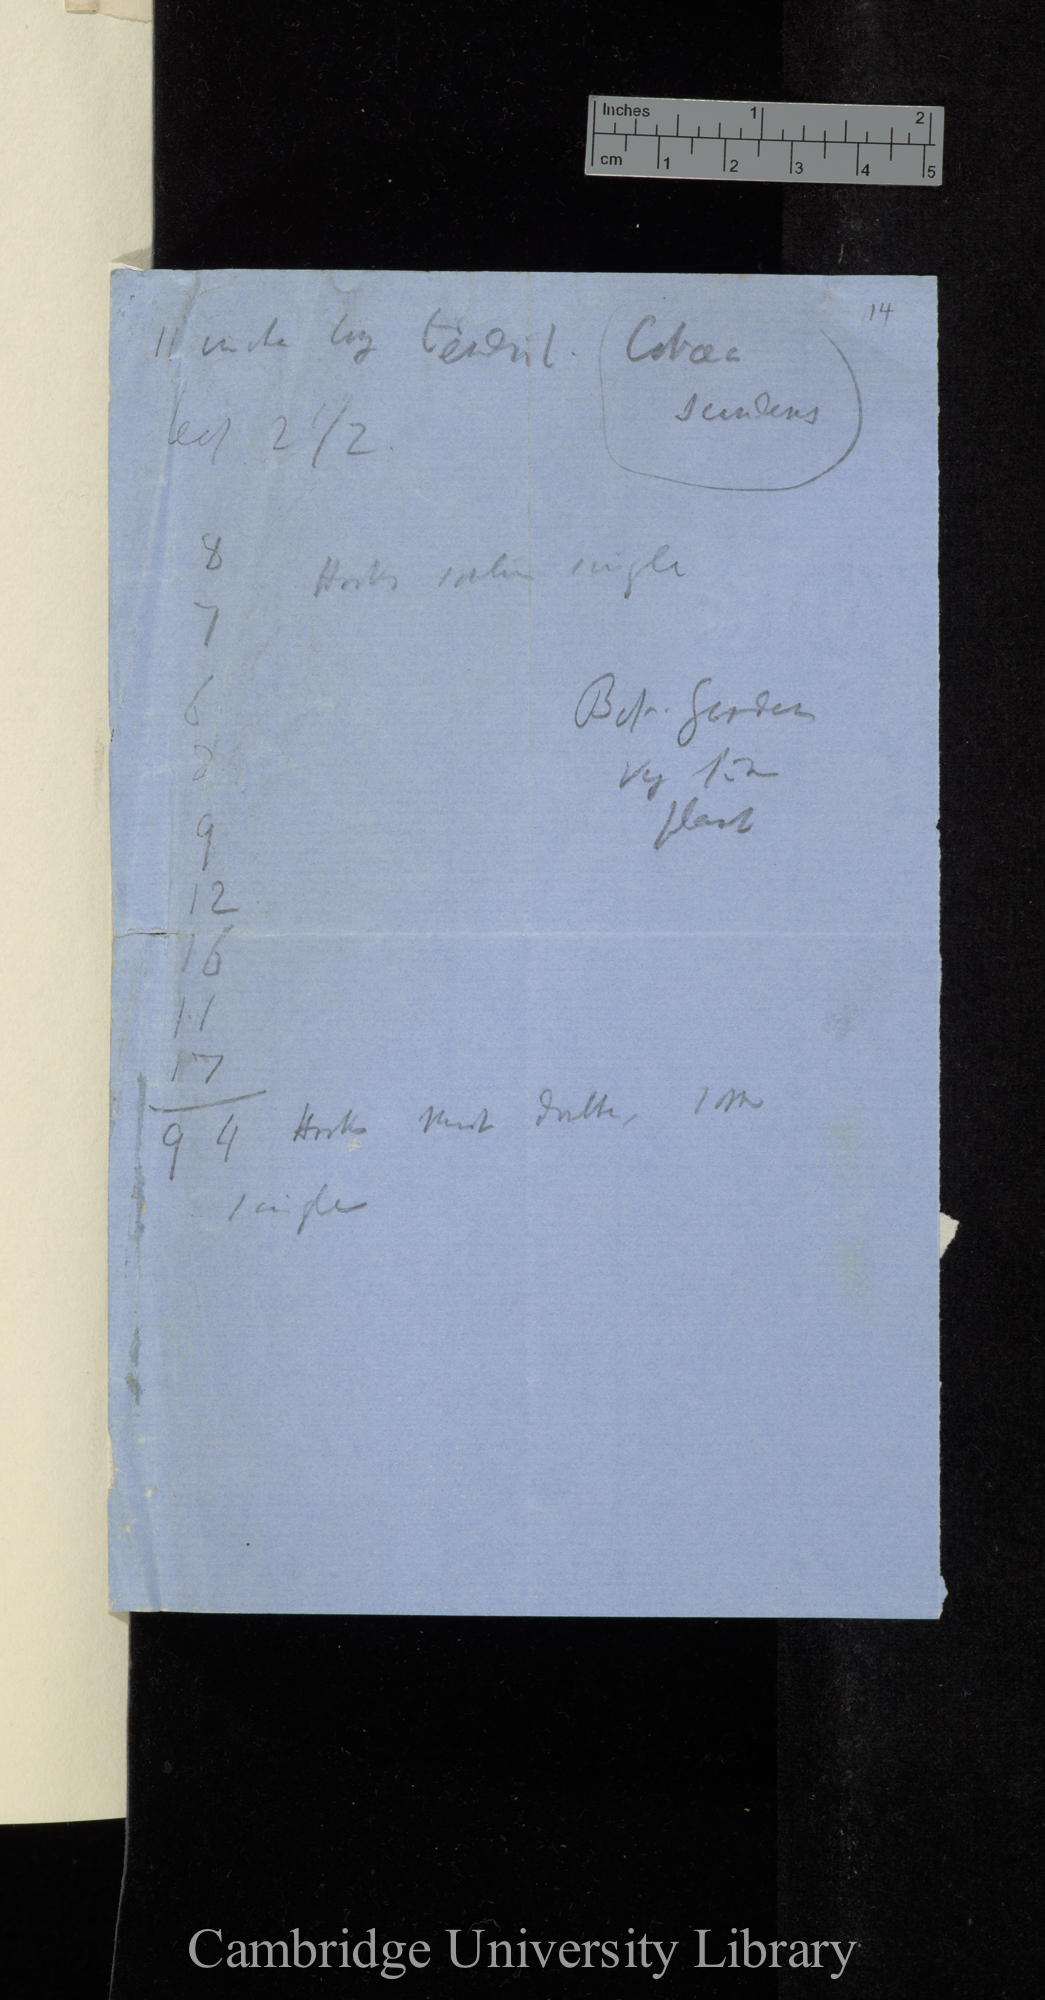 Inches 1 2
cm 1 2 3 4 5
14
11 inche long tendril. Cobæa
scandens
leaf 2 1/2.
8 Hooks single
7
6
Bot. Garden
8
very fine
plant
9
12
16
11
17
94 Hooks most double, some
single
Cambridge University Library